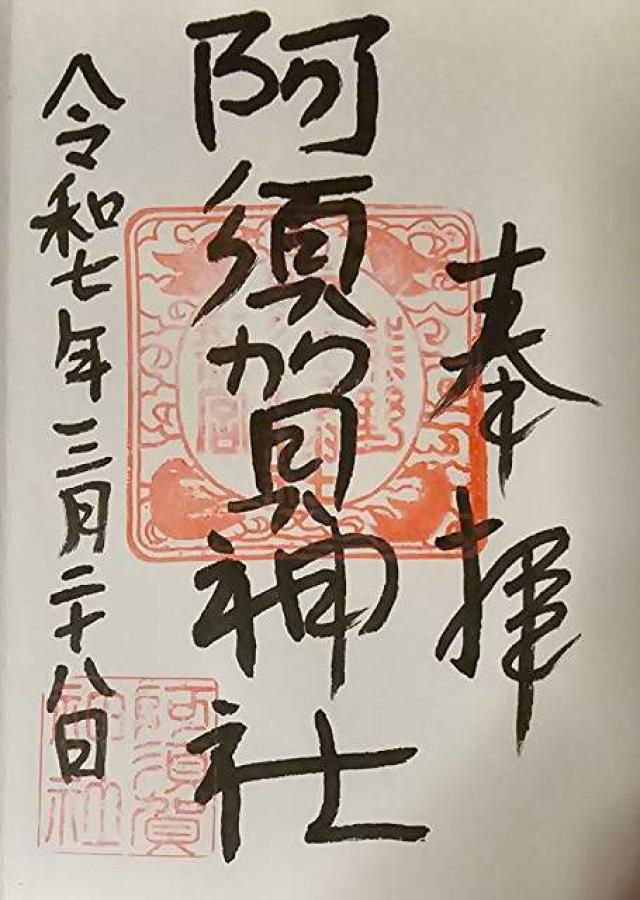 奉拝
阿須賀神社
令和七年三月二十八日
阿須賀
神社